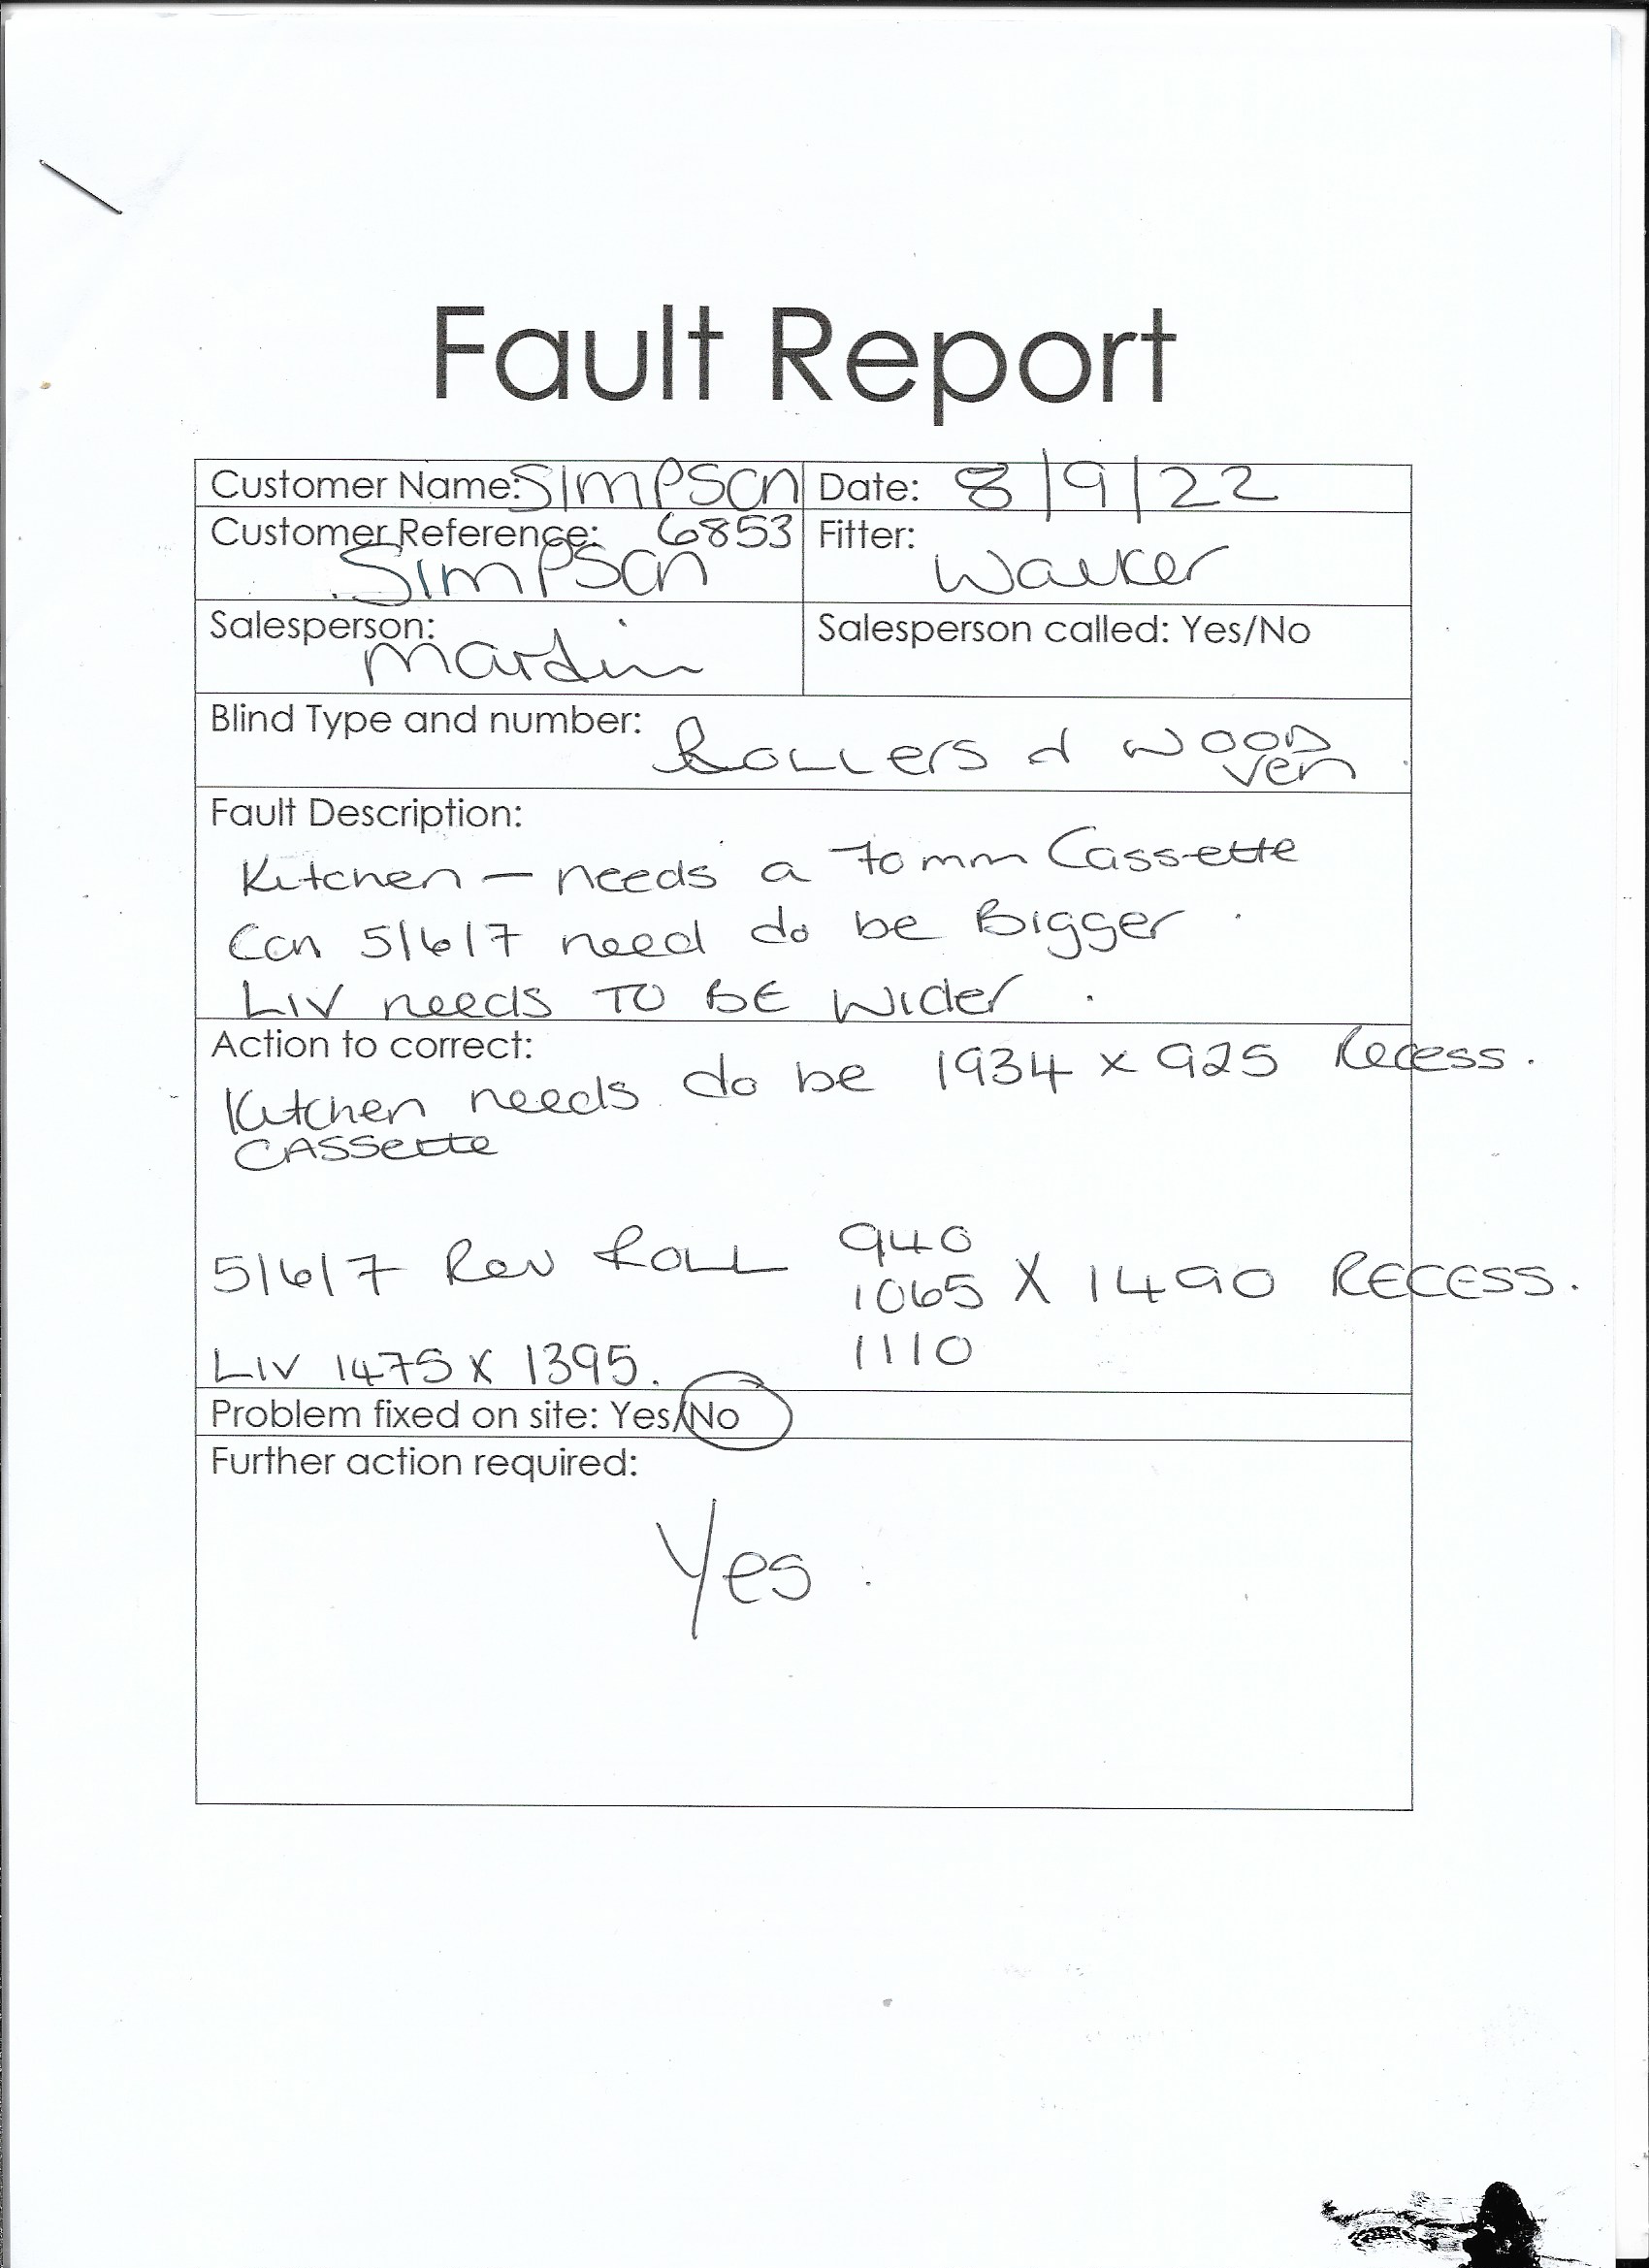 Fault Report
Customer Name: SIMPSON
Date: 8/9/22
Customer Reference: 6853
Simpson
Fitter: Walker
Salesperson: Martin
Salesperson called: Yes/No
Blind Type and number: Rollers & WOOD
Ven
Fault Description:
Kitchen — needs a 70mm Cassette
Con 5/6/7 need to be Bigger.
LIV needs TO BE Wider.
Action to correct:
Kitchen needs to be 1934 x 925 Recess.
CASSette
940
5/6/7 Rev ROLL 1065 X 1490 RECESS.
1110
LIV 1475 X 1395.
Problem fixed on site: Yes/No
Further action required:
Yes.